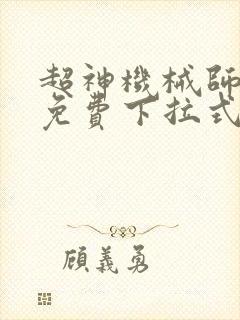 超神機械師
免費下拉式
顧義勇